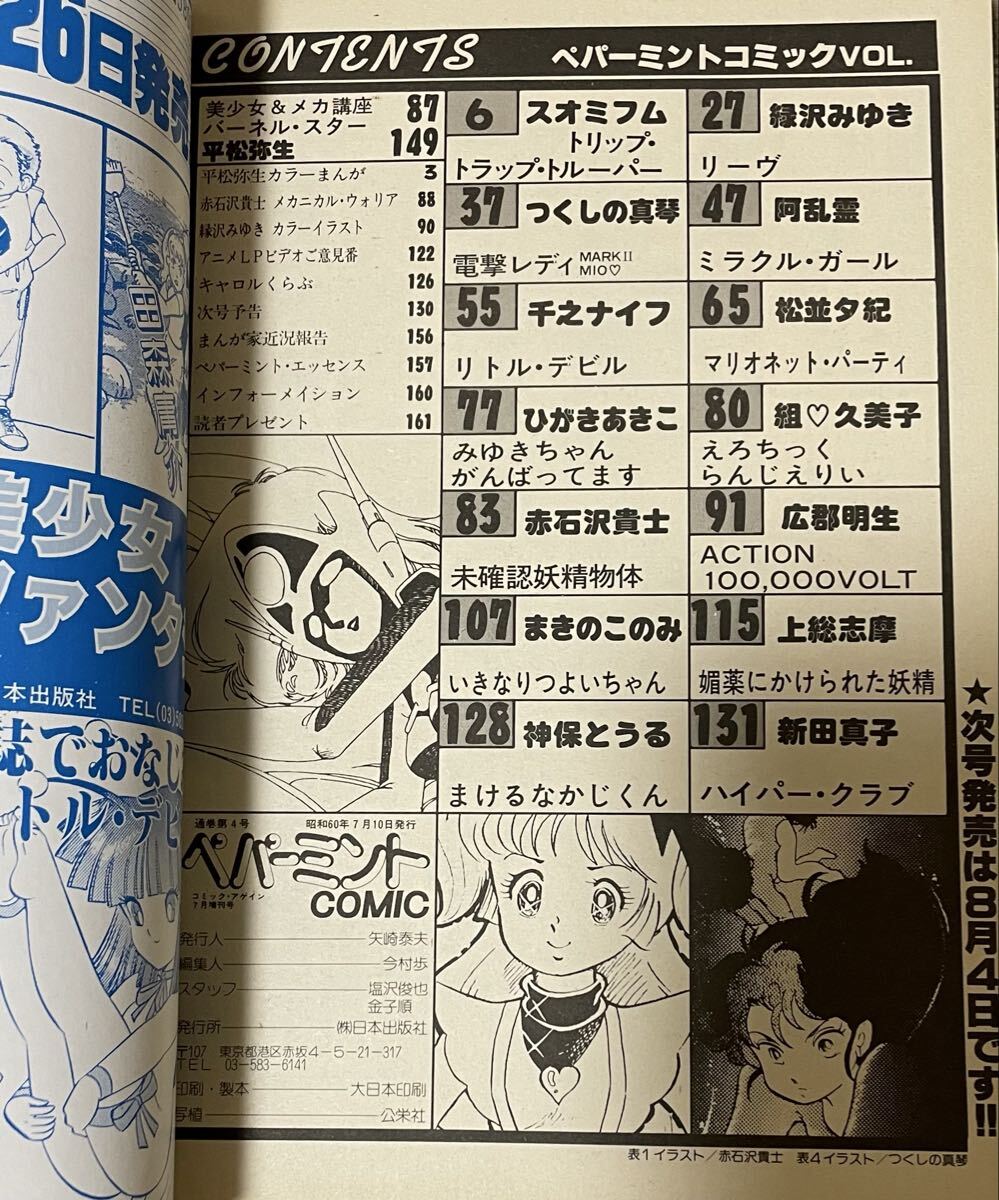 26日発売
美少女
ツアンタ
本出版社 TEL(03)
誌でおなじ
トル・デビ
CONTENTS
ペパーミントコミックVOL.
美少女&メカ講座 87
バーネル・スター
平松弥生 149
平松弥生カラーまんが 3
赤石沢貴士 メカニカル・ウォリア 88
緑沢みゆき カラーイラスト 90
アニメLPビデオご意見番 122
キャロルくらぶ 126
次号予告 130
まんが家近況報告 156
ペパーミント・エッセンス 157
インフォーメイション 160
読者プレゼント 161
6 スオミフム
トリップ・
トラップ・トルーパー
27 緑沢みゆき
リーヴ
37 つくしの真琴
電撃レディ MARKII
MIO♡
47 阿乱霊
ミラクル・ガール
55 千之ナイフ
リトル・デビル
65 松並夕紀
マリオネット・パーティ
77 ひがきあきこ
みゆきちゃん
がんばってます
80 組♡久美子
えろちっく
らんじぇりい
83 赤石沢貴士
未確認妖精物体
91 広郡明生
ACTION
100,000VOLT
107 まきのこのみ
いきなりつよいちゃん
115 上総志摩
媚薬にかけられた妖精
128 神保とうる
まけるなかじくん
131 新田真子
ハイパー・クラブ
通巻第4号 昭和60年7月10日発行
ペパーミント
コミック・アゲイン
7月増刊号
COMIC
発行人 矢崎泰夫
編集人 今村歩
スタッフ 塩沢俊也
金子順
発行所 ㈱日本出版社
〒107 東京都港区赤坂4-5-21-317
TEL 03-583-6141
印刷・製本 大日本印刷
写植 公栄社
★次号発売は8月4日です!!
表1イラスト/赤石沢貴士 表4イラスト/つくしの真琴